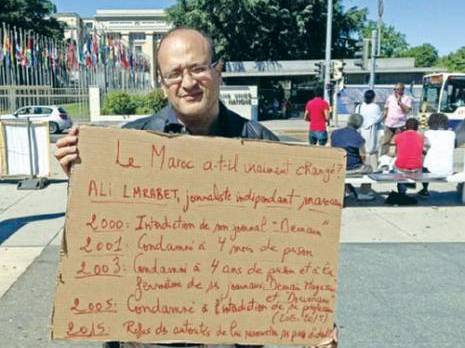 Le Maroc a-t-il vraiment changé?
ALI LMRABET, journaliste indépendant, marocain
2000: Interdiction de son journal "Demain"
2001: Condamné à 4 mois de prison
2003: Condamné à 4 ans de prison et à la
fermeture de ses journaux "Demain Magazine
et "Doumane"
2005: Condamné à l'interdiction de sa profession
2015: Refus des autorités de lui renouveler ses